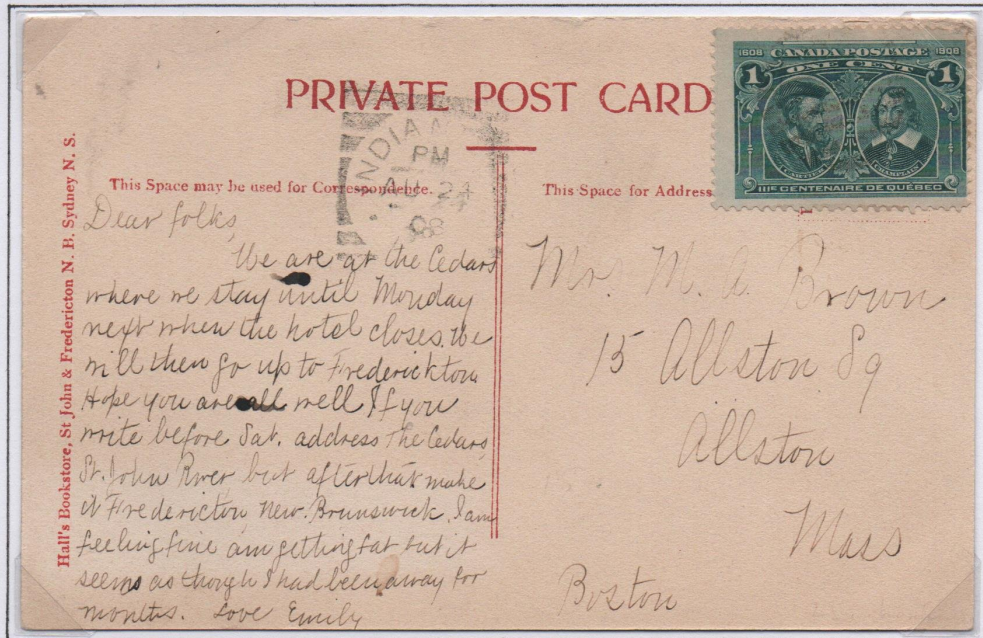 1608 CANADA POSTAGE 1908
ONE CENT
1 1
CARTIER CHAMPLAIN
IIIᵉ CENTENAIRE DE QUÉBEC
PRIVATE POST CARD
INDIAN
PM
AU 24
08
This Space may be used for Correspondence.
This Space for Address
Hall's Bookstore, St John & Fredericton N. B. Sydney N. S.
Dear folks,
We are at the Cedars
where we stay until Monday
next when the hotel closes. We
will then go up to Frederickton
Hope you are all well If you
write before Sat. address The Cedars
St. John River but after that make
it Fredericton New. Brunswick. I am
feeling fine am getting fat but it
seems as though I had been away for
months. Love Emily
M. A. Brown
15 Allston Sq
Allston
Mass
Boston